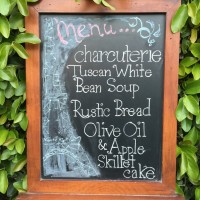 Menu...
charcuterie
Tuscan White
Bean Soup
Rustic Bread
Olive Oil
& Apple
Skillet
cake